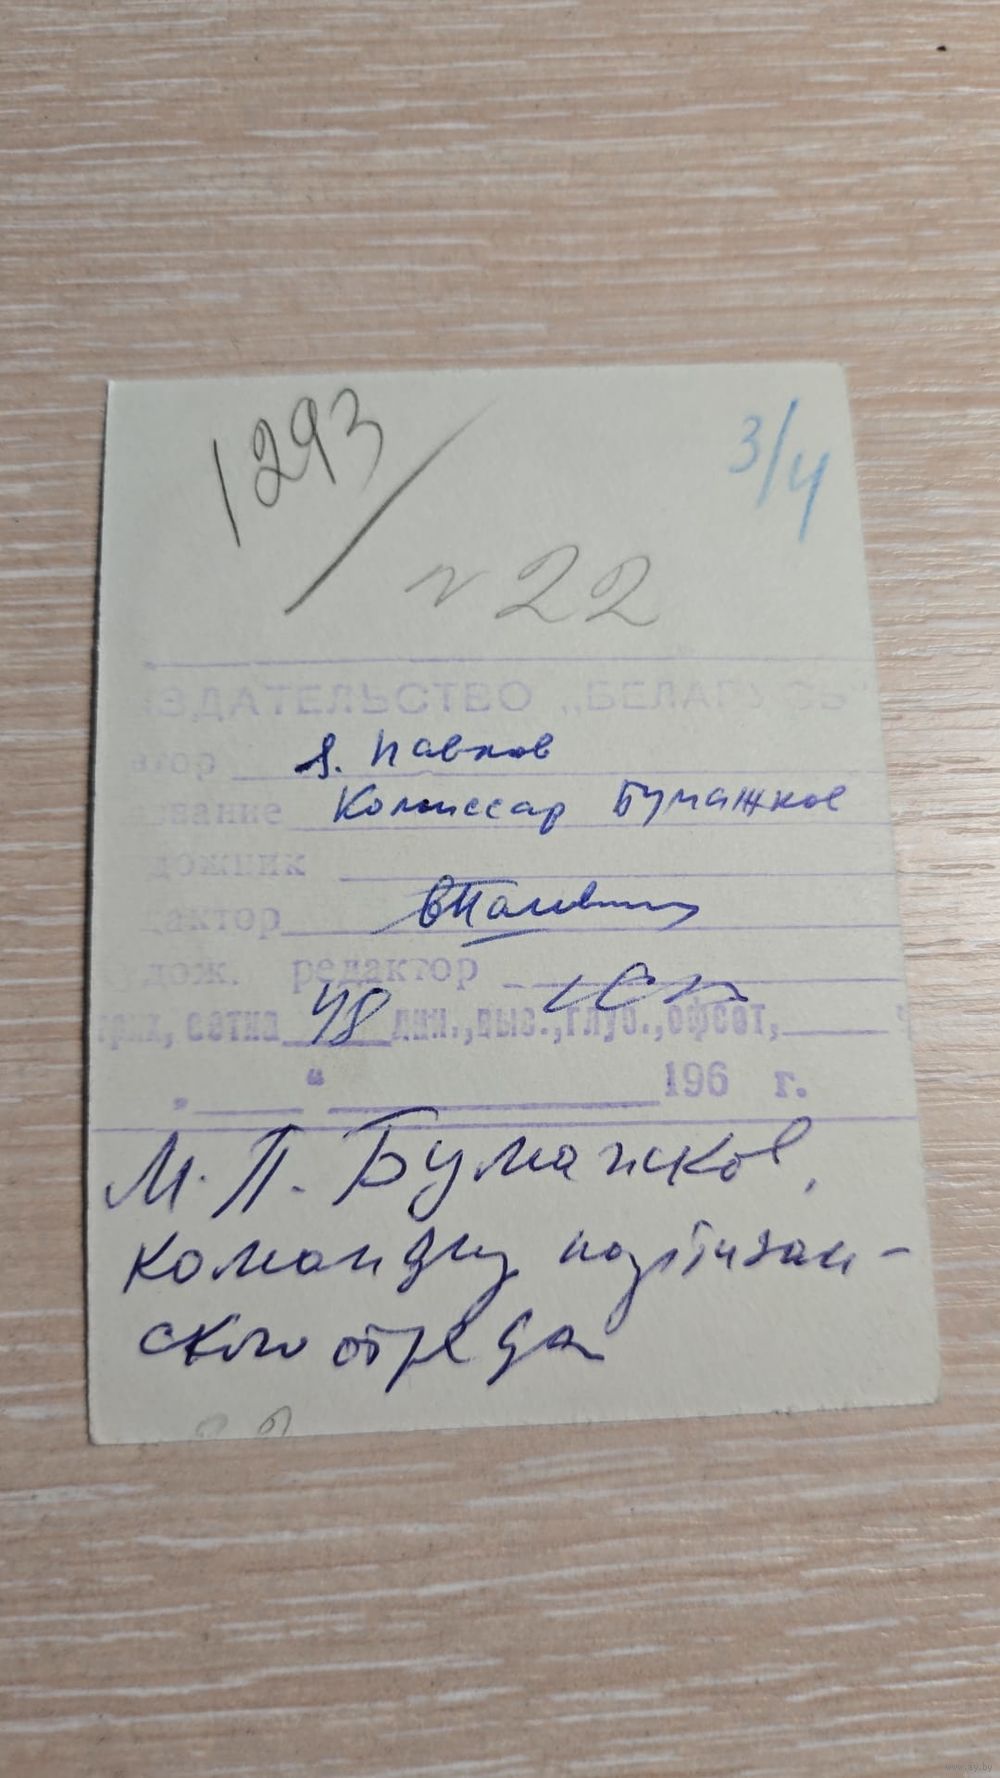 1293
3/4
N 22
ИЗДАТЕЛЬСТВО „БЕЛАРУСЬ"
втор Я. Павлов
вание Комиссар Бумажков
дожник
актор
дож. редактор
сетка 48 лин., выс., глуб., офсет,
„ " 196 г.
М. П. Бумажков,
командир партизан-
ского отряда
www.ay.by